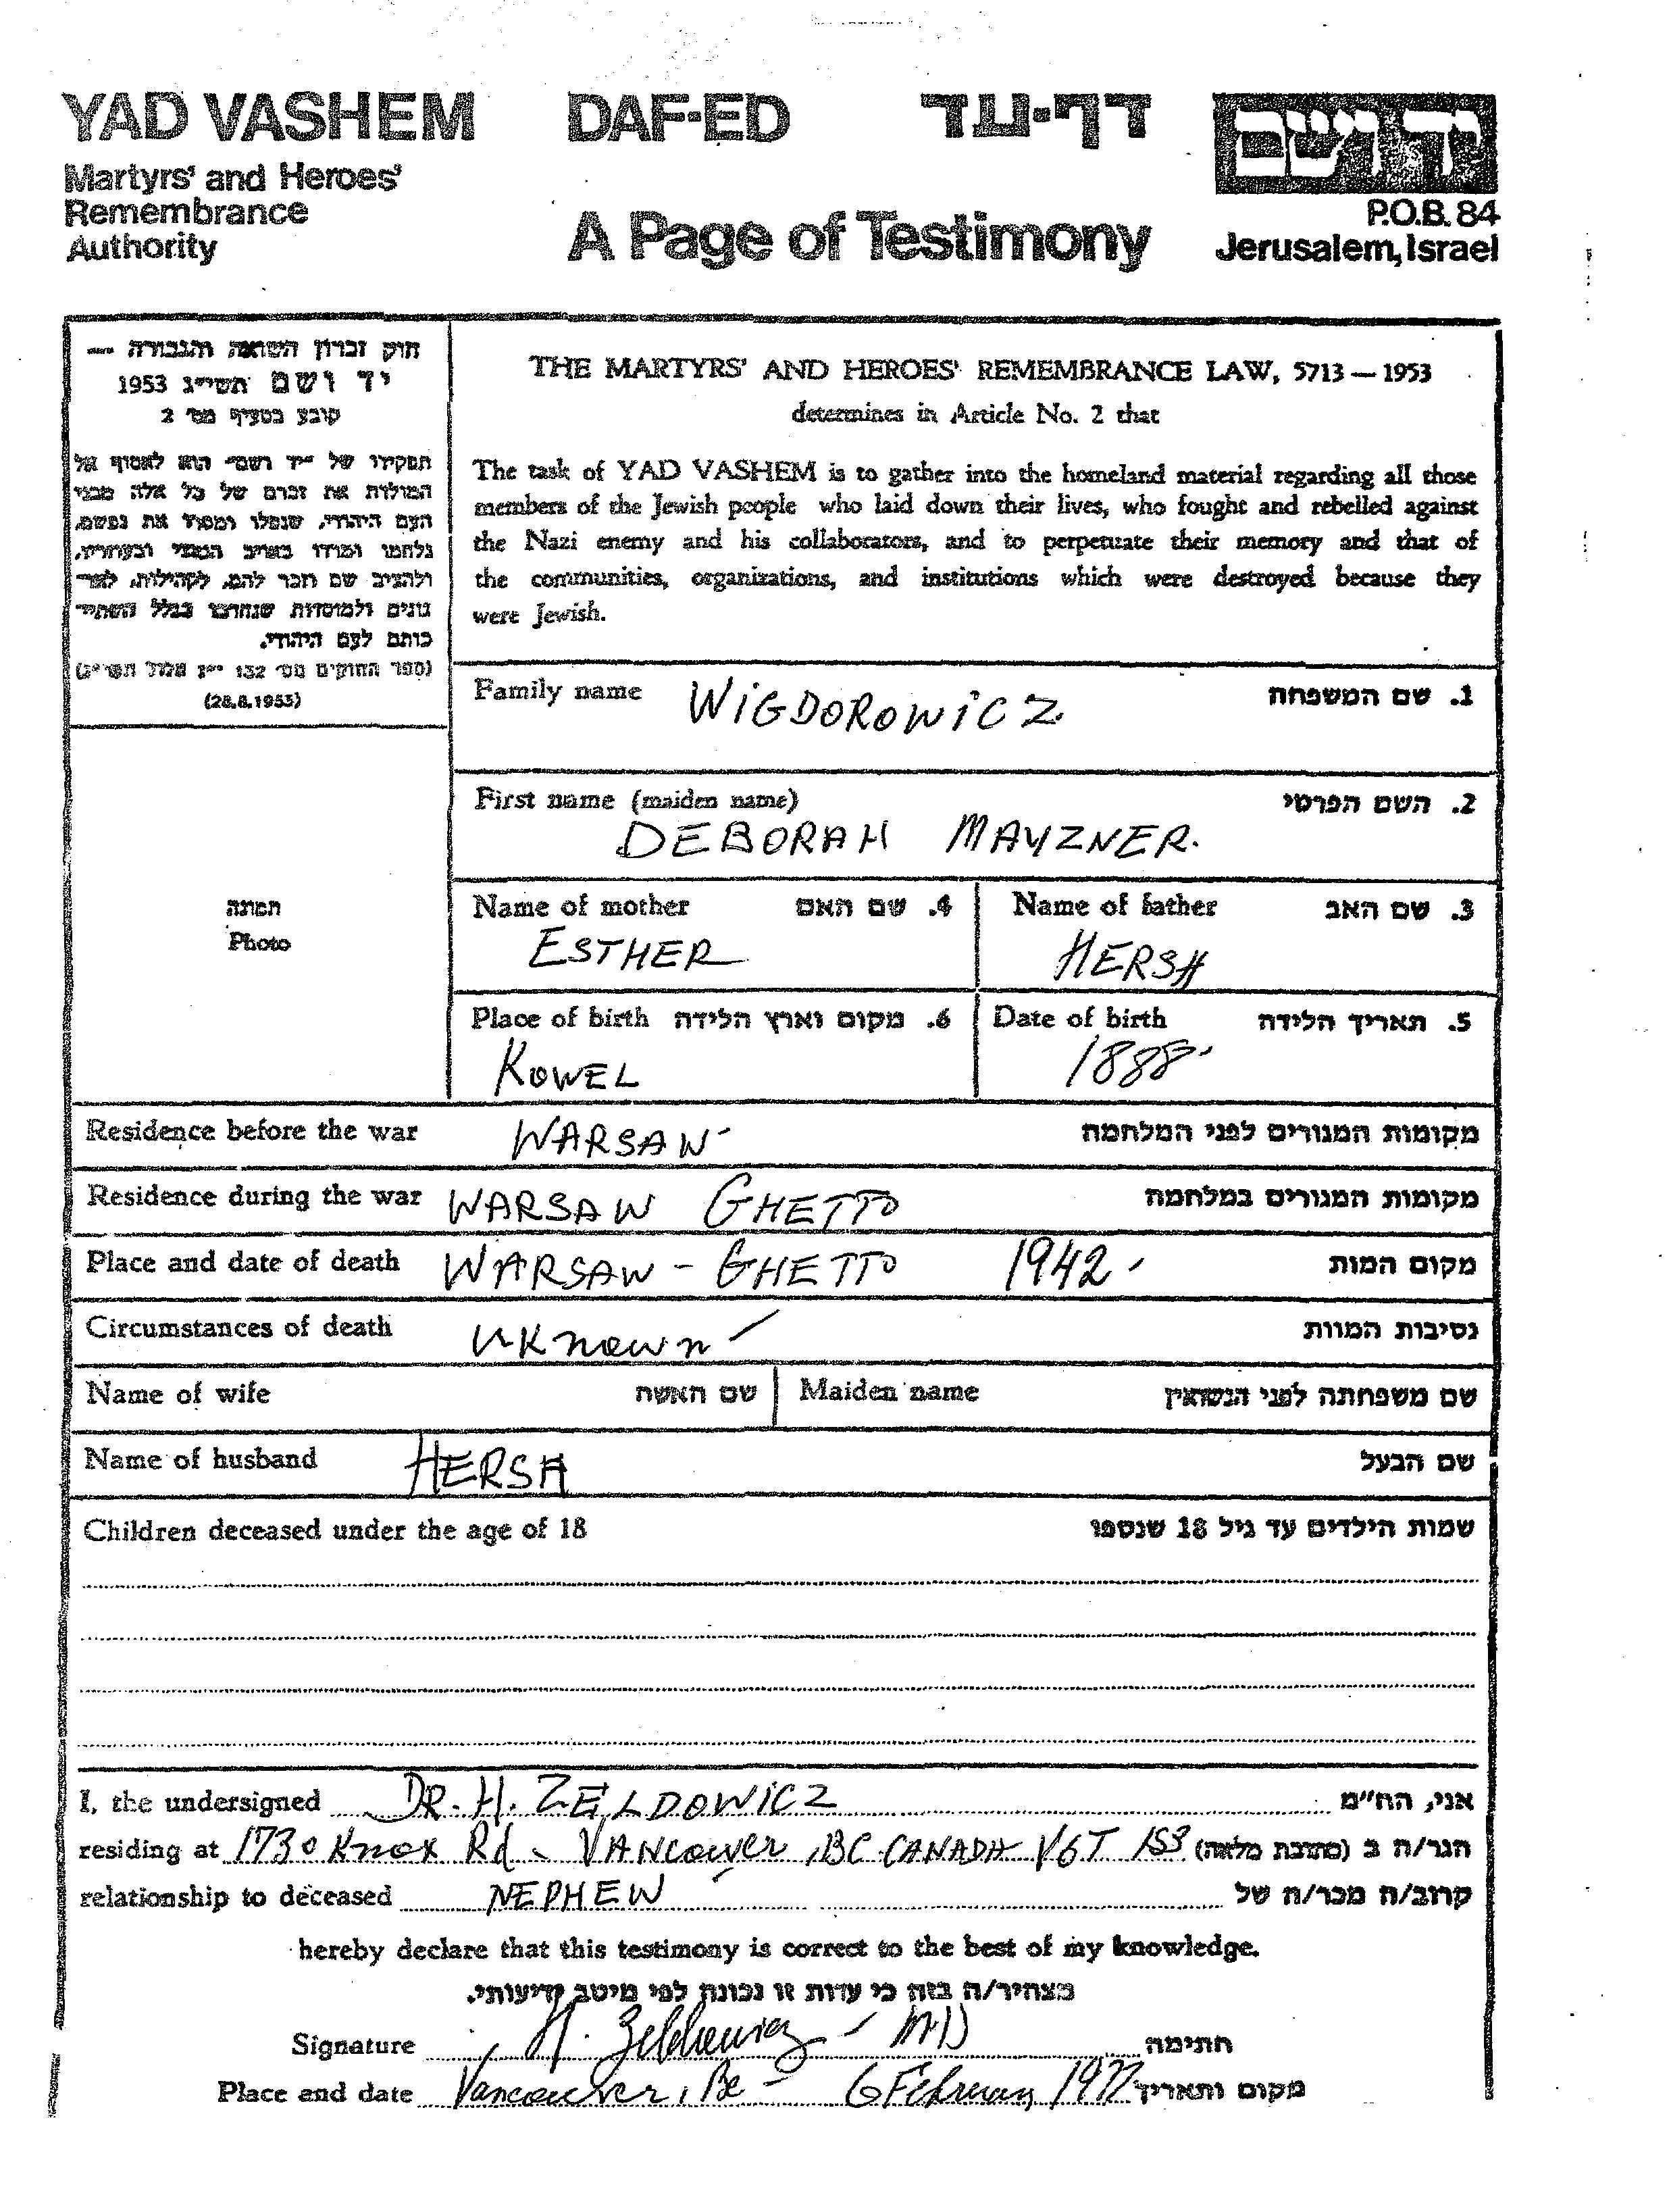 YAD VASHEM DAF-ED דף-עד
Martyrs' and Heroes'
Remembrance
Authority
A Page of Testimony
יד ושם
P.O.B. 84
Jerusalem, Israel
חוק זכרון השואה והגבורה —
יד ושם תשי"ג 1953
קובע בסעיף מס' 2
תפקידו של "יד ושם" הוא לאסוף אל
המולדת את זכרם של כל אלה מבני
העם היהודי, שנפלו ומסרו את נפשם,
נלחמו ומרדו באויב הנאצי ובעוזריו,
ולהציב שם וזכר להם, לקהילות, לאר-
גונים ולמוסדות שנחרבו בגלל השתיי-
כותם לעם היהודי.
(ספר החוקים מס' 132 י"ז אלול תשי"ג)
(28.8.1953)
THE MARTYRS' AND HEROES' REMEMBRANCE LAW, 5713 — 1953
determines in Article No. 2 that
The task of YAD VASHEM is to gather into the homeland material regarding all those
members of the Jewish people who laid down their lives, who fought and rebelled against
the Nazi enemy and his collaborators, and to perpetuate their memory and that of
the communities, organizations, and institutions which were destroyed because they
were Jewish.
Family name WIGDOROWICZ 1. שם המשפחה
First name (maiden name) 2. השם הפרטי
DEBORAH MAYZNER.
תמונה
Photo
Name of mother 4. שם האם Name of father 3. שם האב
ESTHER HERSH
Place of birth 6. מקום וארץ הלידה Date of birth 5. תאריך הלידה
KOWEL 1888
Residence before the war WARSAW מקומות המגורים לפני המלחמה
Residence during the war WARSAW GHETTO מקומות המגורים במלחמה
Place and date of death WARSAW - GHETTO 1942 מקום המות
Circumstances of death UKnown נסיבות המוות
Name of wife שם האשה Maiden name שם משפחתה לפני הנשואין
Name of husband HERSH שם הבעל
Children deceased under the age of 18 שמות הילדים עד גיל 18 שנספו
I, the undersigned DR. H. ZELDOWICZ אני, הח"מ
residing at 1730 Knox Rd - VANCOUVER, BC CANADA V6T 1S3 הגר/ה ב (כתובת מלאה)
relationship to deceased NEPHEW קרוב/ה מכר/ה של
hereby declare that this testimony is correct to the best of my knowledge.
מצהיר/ה בזה כי עדות זו נכונה לפי מיטב ידיעותי.
Signature H. Zeldowicz - MD חתימה
Place and date Vancouver, BC - 6 February 1977 מקום ותאריך